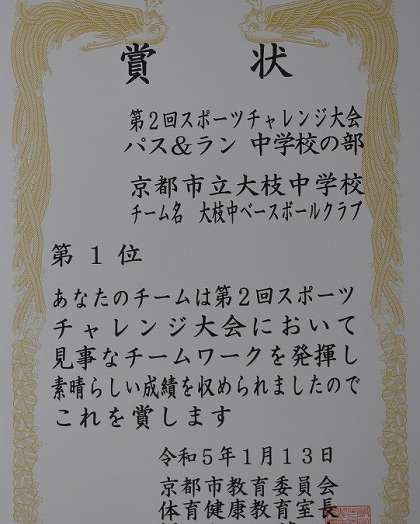 賞 状
第2回スポーツチャレンジ大会
パス&ラン 中学校の部
京都市立大枝中学校
チーム名 大枝中ベースボールクラブ
第 1 位
あなたのチームは第2回スポーツ
チャレンジ大会において
見事なチームワークを発揮し
素晴らしい成績を収められましたので
これを賞します
令和5年1月13日
京都市教育委員会
体育健康教育室長